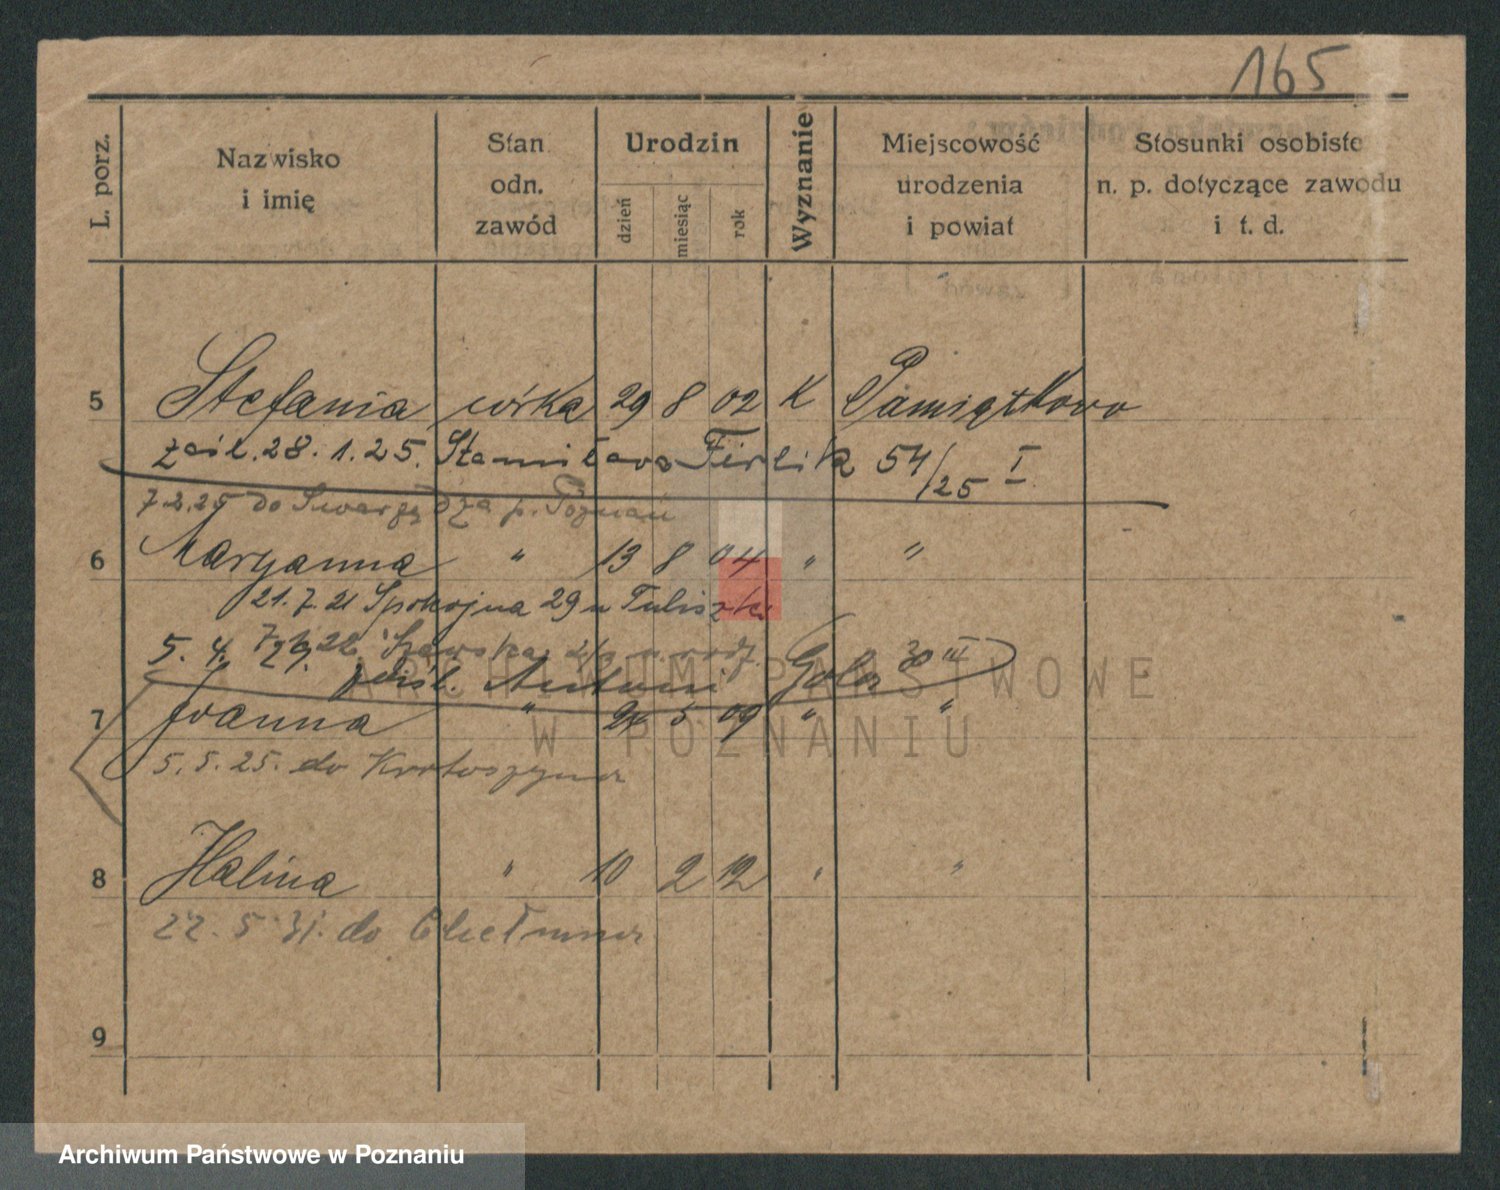 165
L. porz.
Nazwisko i imię
Stan odn. zawód
Urodzin
dzień
miesiąc
rok
Wyznanie
Miejscowość urodzenia i powiat
Stosunki osobiste n. p. dotyczące zawodu i t. d.
5 Stefania córka 29 8 02 K Pamiątkowo
zaśl. 28. 1. 25. Stanisława Firlik 54/25 I
7.2.25 do Swarzędza p. Poznań
6 Maryanna " 13 8 04 " "
21. 7. 21 Spokojna 29 u Tuliszki
5. 4. 29.
zaśl. Antoni Goler 30 III
7 Joanna " 24 5 09 " "
5. 5. 25. do Krotoszyna
8 Halina " 10 2 12 " "
22. 5. 31. do Chełmna
9
ARCHIWUM PAŃSTWOWE
W POZNANIU
Archiwum Państwowe w Poznaniu